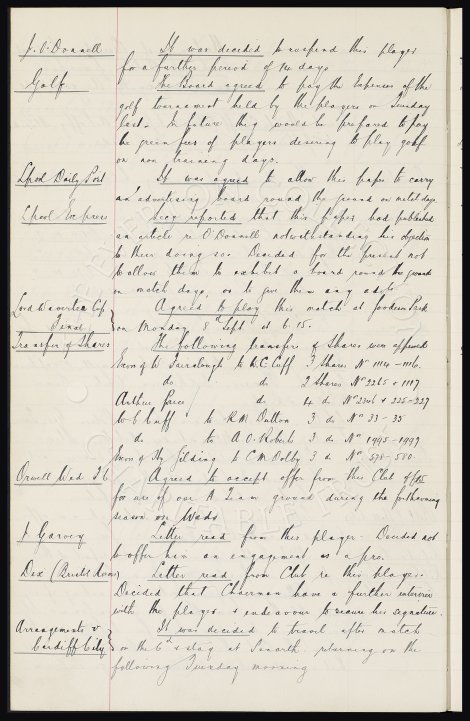 J. O'Donnell
It was decided to suspend this player
for a further period of 14 days
Golf.
The Board agreed to pay the Expenses of the
golf tournament held by the players on Sunday
last. In future they would be prepared to pay
the green fees of players desiring to play golf
on non training days.
Lpool Daily Post
It was agreed to allow this paper to carry
an advertising board round the ground on match days.
Lpool Express
Secy reported that this paper had published
an article re O'Donnell notwithstanding his objection
to them doing so. Decided for the present not
to allow them to exhibit a board round the ground
on match days, or to give them any
Lord Wavertree Cup
Final
Agreed to play this match at Goodison Park
on Monday 8th Sept at 6.15.
Transfer of Shares
The following transfers of Shares were approved
W. to W.C. Cuff 3 Shares No 1114-1116.
do do 2 Shares No 2265 + 1117
Arthur Price do 4 do No + 225-227
W.C. Cuff to R.M. Dutton 3 do No 33-35
do to A.O. Roberts 3 do No 1995-1997
to C.M. Dolby 3 do No 578-580.
Orwell Wed. F.C
Agreed to accept offer from this Club of
for use of our A Team ground during the forthcoming
season on Weds.
J. Garvey
Letter read from this player. Decided not
to offer him an engagement as a pro.
Dix (Bristol Rovers)
Letter read from Club re this player.
Decided that Chairman have a further interview
with the player & endeavour to secure his signature.
Arrangements v
Cardiff City
It was decided to travel after match
on the 6th & stay at Penarth, returning on the
following Tuesday morning